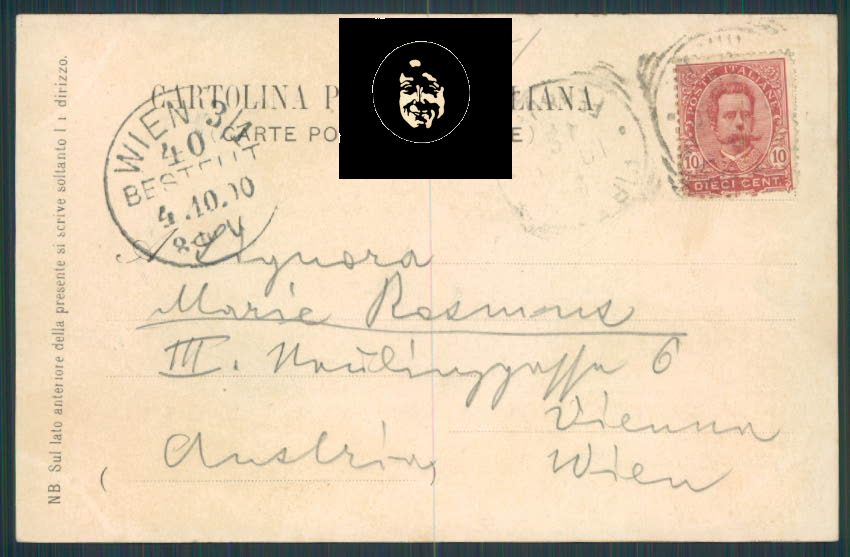 CARTOLINA P LIANA
(CARTE PO E)
WIEN 3/4
40
BESTELLT
4.10.00
POSTE ITALIANE
10 10
DIECI CENT.
Signora
Marie Rosmanns
III. 6
Vienna
(Austria) Wien
NB Sul lato anteriore della presente si scrive soltanto l dirizzo.